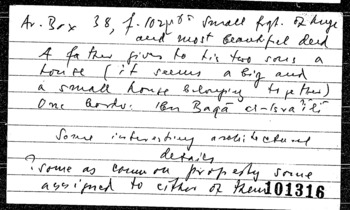 Ar. Box 38, f. 102 small fgt. of huge
and most beautiful deed
A father gives to his two sons a
house (it seems a big and
a small house belonging together)
One bords: ibn Baqā el-Isrā'īlī
Some interesting architectural
details
? some as common property some
assigned to either of them 101316